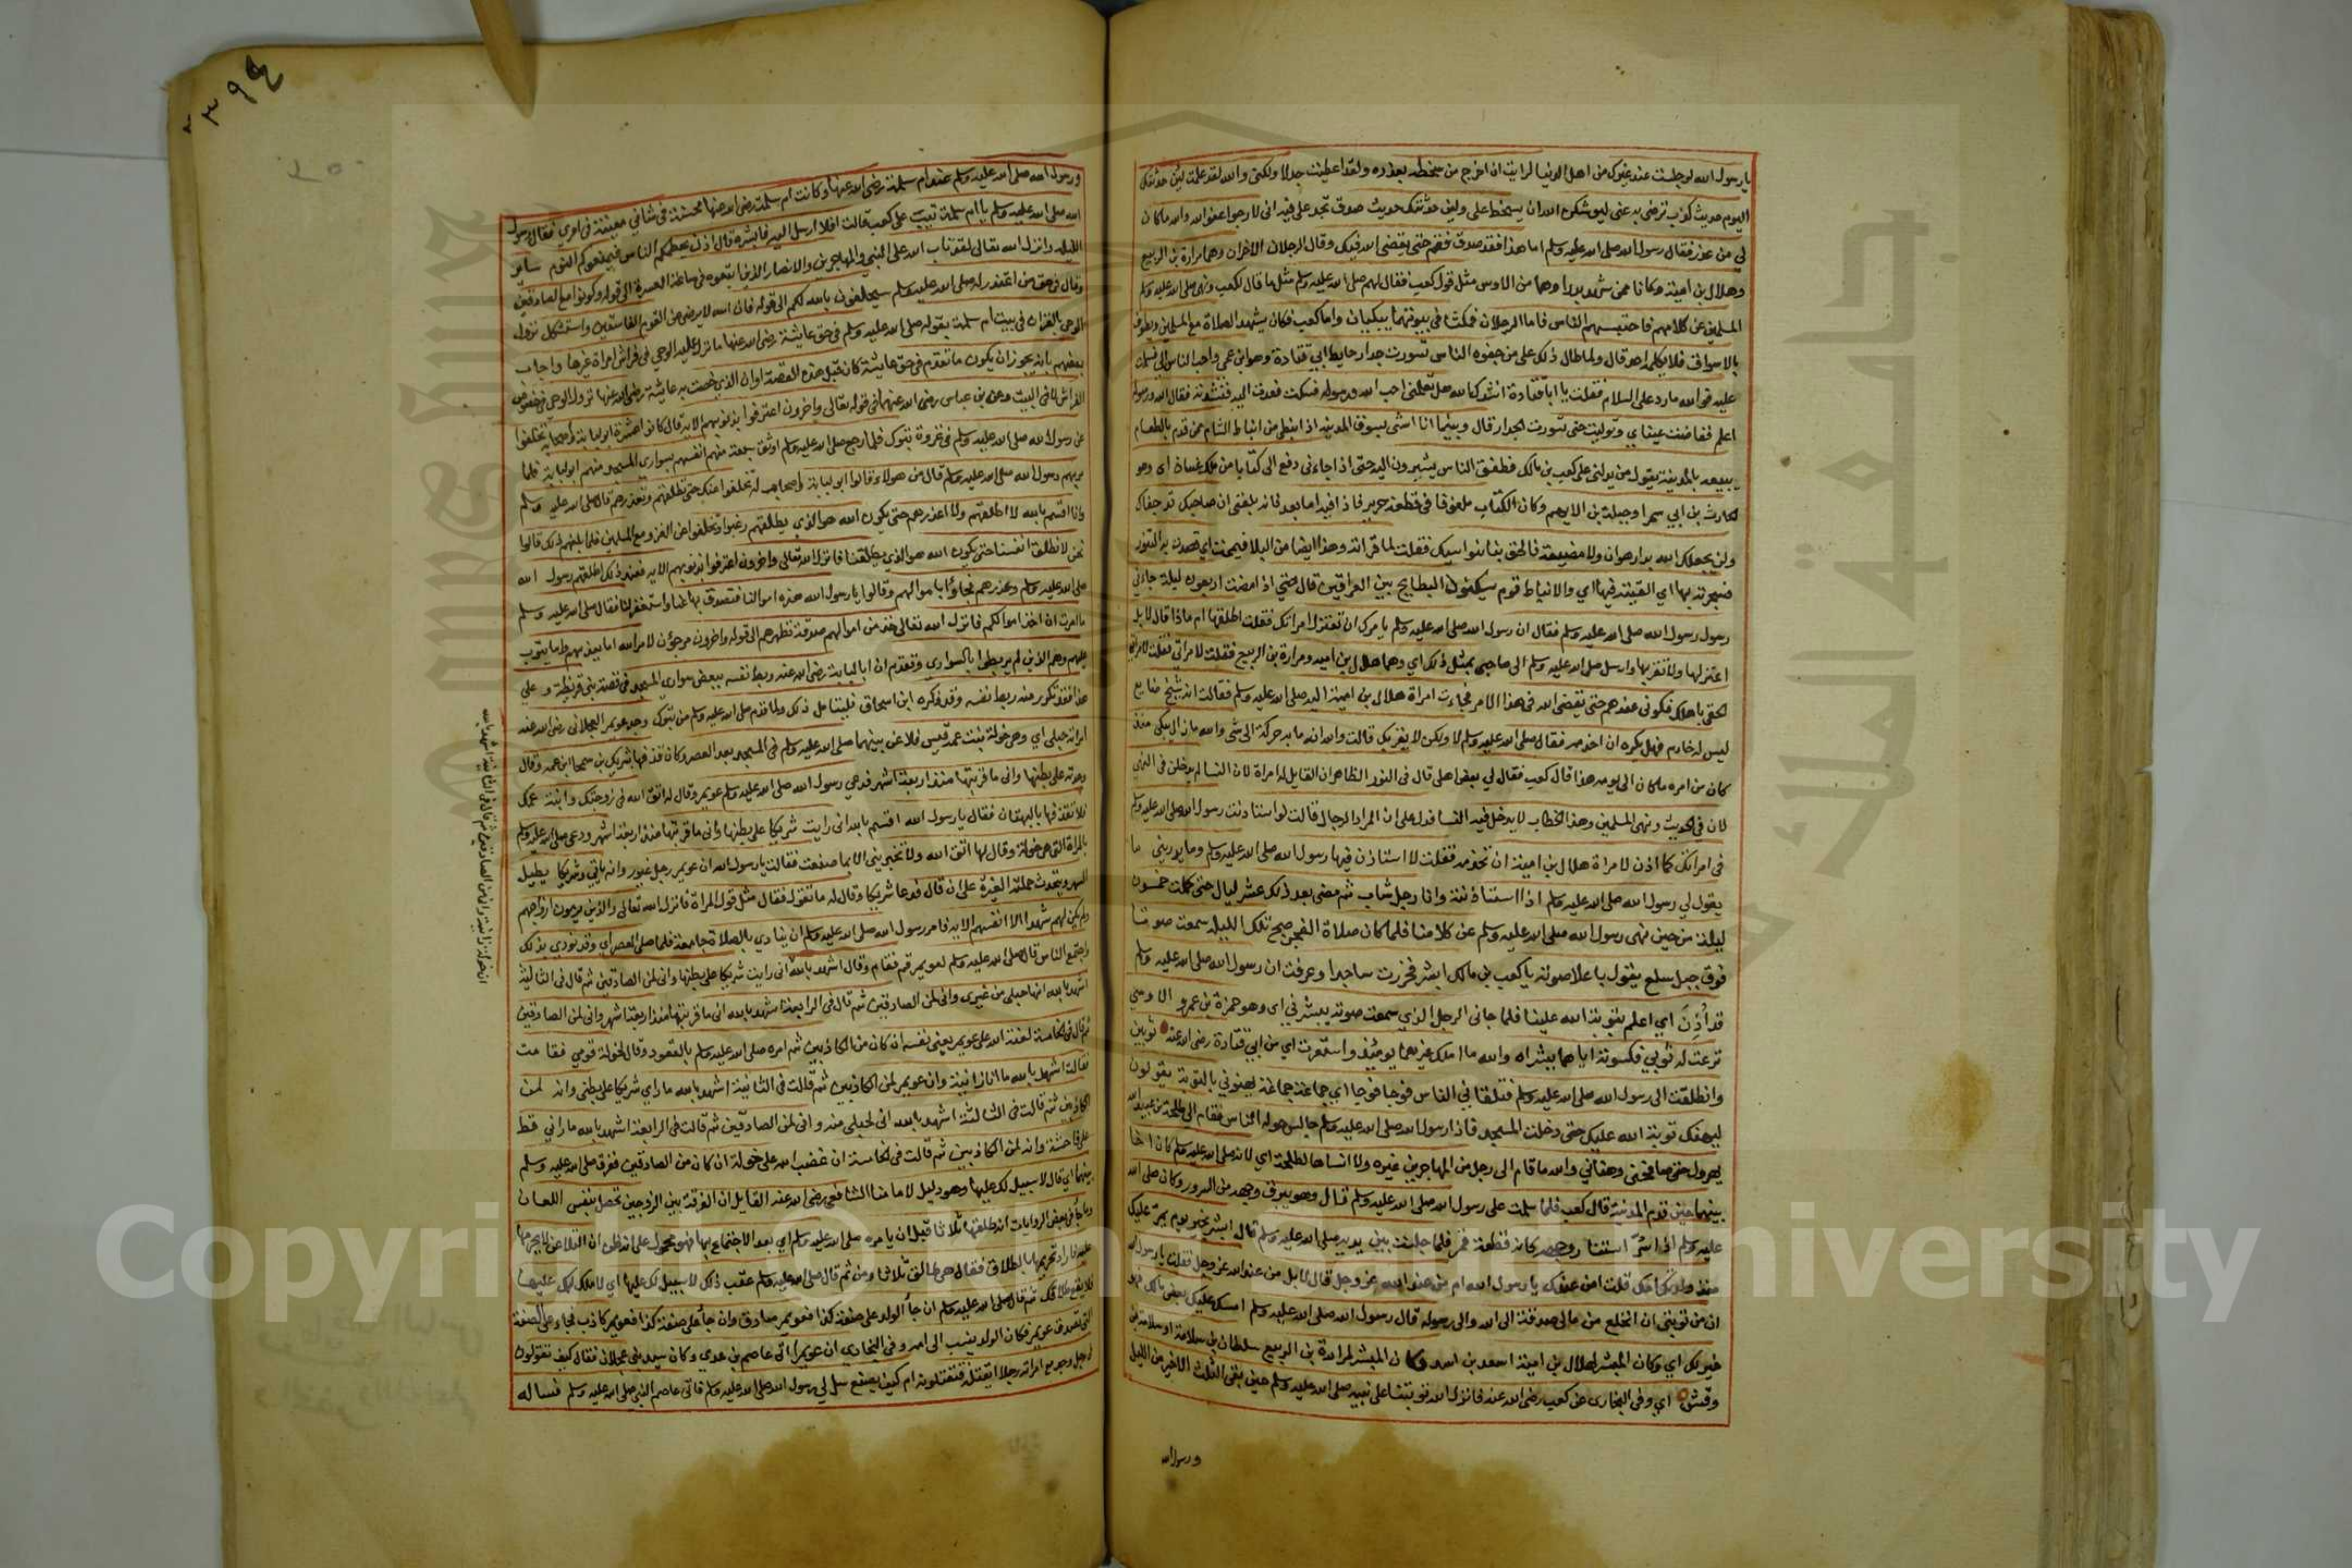 يا رسول الله لو جلست عند غيرك من اهل الدنيا لرايت ان اخرج من سخطه بعذره ولقد اعطيت جدلا ولكني والله لقد علمت لئن حدثتك
اليوم حديث كذب ترضى به عني ليوشكن الله ان يسخط علي ولئن حدثتك حديث صدق تجد علي فيه اني لارجو اعفو الله والله ما كان
لي من عذر فقال رسول الله صلى الله عليه وسلم اما هذا فقد صدق فقم حتى يقضي الله فيك وقال الرجلان الاخران وهما مرارة بن الربيع
وهلال بن امية وكانا ممن شهد بدرا وهما من الاوس مثل قول كعب فقال لهم صلى الله عليه وسلم مثل ما قال لكعب ونهى صلى الله عليه وسلم
المسلمين عن كلامهم فاجتنبهم الناس فاما الرجلان فمكثا في بيوتهما يبكيان واما كعب فكان يشهد الصلاة مع المسلمين ويطوف
بالاسواق فلا يكلمه احد قال ولما طال ذلك علي من جفوة الناس تسورت جدار حايط ابي قتادة وهو ابن عمي واحب الناس الي فسلمت
عليه فو الله ما رد علي السلام فقلت يا ابا قتادة انشدك الله هل تعلمني احب الله ورسوله فسكت فعدت اليه فنشدته فقال الله ورسوله
اعلم ففاضت عيناي وتوليت حتى تسورت الجدار قال وبينما انا امشي بسوق المدينة اذا نبطي من انباط الشام ممن قدم بالطعام
يبيعه بالمدينة يقول من يدلني على كعب بن مالك فطفق الناس يشيرون اليه حتى اذا جاءني دفع الي كتابا من ملك غسان اي وهو
الحارث بن ابي شمر او جبلة بن الايهم وكان الكتاب ملفوفا في قطعة حرير فاذا فيه اما بعد فانه بلغني ان صاحبك قد جفاك
ولم يجعلك الله بدار هوان ولا مضيعة فالحق بنا نواسيك فقلت لما قراته وهذا ايضا من البلا فيممت اي قصدت به التنور
فسجرته بها اي القيته فيها اي والانباط قوم يسكنون البطايح بين العراقين قال حتى اذا مضت اربعون ليلة جاءني
رسول رسول الله صلى الله عليه وسلم فقال ان رسول الله صلى الله عليه وسلم يامرك ان تعتزل امراتك فقلت اطلقها ام ماذا قال لا بل
اعتزلها ولا تقربها وارسل صلى الله عليه وسلم الى صاحبي بمثل ذلك اي وهما هلال بن امية ومرارة بن الربيع فقلت لامراتي
الحقي باهلك فكوني عندهم حتى يقضي الله في هذا الامر فجاءت امراة هلال بن امية اليه صلى الله عليه وسلم فقالت انه شيخ ضايع
ليس له خادم فهل تكره ان اخدمه فقال صلى الله عليه وسلم لا ولكن لا يقربك قالت والله انه ما به حركة الى شي والله ما زال يبكي منذ
كان من امره ما كان الى يومه هذا قال كعب فقال لي بعض اهلي قال في النور الظاهر ان القايل له امراة لان النسا لم يدخلن في النهي
لان في الحديث ونهى المسلمين وهذا الخطاب لا يدخل فيه النسا فدل على ان المراد الرجال قالت لو استاذنت رسول الله صلى الله عليه وسلم
في امراتك كما اذن لامراة هلال بن امية ان تخدمه فقلت لا استاذن فيها رسول الله صلى الله عليه وسلم وما يدريني ما
يقول لي رسول الله صلى الله عليه وسلم اذا استاذنته وانا رجل شاب ثم مضى بعد ذلك عشر ليال حتى كملت خمسون
ليلة من حين نهى رسول الله صلى الله عليه وسلم عن كلامنا فلما كان صلاة الفجر صبح تلك الليلة سمعت صوتا
فوق جبل سلع يقول باعلا صوته يا كعب بن مالك ابشر فخررت ساجدا وعرفت ان رسول الله صلى الله عليه وسلم
قد أذن اي اعلم بتوبة الله علينا فلما جاني الرجل الذي سمعت صوته يبشرني اي وهو حمزة بن عمرو الاوسي
نزعت له ثوبي فكسوته اياهما ببشراه والله ما املك غيرهما يومئذ واستعرت اي من ابي قتادة رضي الله عنه ثوبين
وانطلقت الى رسول الله صلى الله عليه وسلم فتلقاني الناس فوجا فوجا اي جماعة جماعة يهنوني بالتوبة يقولون
ليهنك توبة الله عليك حتى دخلت المسجد فاذا رسول الله صلى الله عليه وسلم جالس حوله الناس فقام الي طلحة بن عبيد الله
يهرول حتى صافحني وهناني والله ما قام الي رجل من المهاجرين غيره ولا انساها لطلحة اي لانه صلى الله عليه وسلم كان اخا
بينهما حين قدم المدينة قال كعب فلما سلمت على رسول الله صلى الله عليه وسلم قال وهو يبرق وجهه من السرور وكان صلى الله
عليه وسلم اذا سر استنار وجهه كانه قطعة قمر فلما جلست بين يديه صلى الله عليه وسلم قال ابشر بخير يوم يمر عليك
منذ ولدتك امك قلت امن عندك يا رسول الله ام من عند الله عز وجل قال لا بل من عند الله عز وجل فقلت يا رسول الله
ان من توبتي ان انخلع من مالي صدقة الى الله والى رسوله قال رسول الله صلى الله عليه وسلم امسك عليك بعض مالك فهو
خير لك اي وكان المبشر لهلال بن امية اسعد بن اسد وكان المبشر لمرارة بن الربيع سلطان بن سلامة او سلامة بن
وقش اي وفي البخاري عن كعب رضي الله عنه فانزل الله توبتنا على نبيه صلى الله عليه وسلم حين بقي الثلث الاخير من الليل
ورسول الله
٣٩٤
ورسول الله صلى الله عليه وسلم عند ام سلمة رضي الله عنها وكانت ام سلمة رضي الله عنها محسنة في شاني معينة في امري فقال رسول
الله صلى الله عليه وسلم يا ام سلمة تيب على كعب قالت افلا ارسل اليه فابشره قال اذن يحطمكم الناس فيمنعوكم النوم ساير
الليلة وانزل الله تعالى لقد تاب الله على النبي والمهاجرين والانصار الذين اتبعوه في ساعة العسرة الى قوله وكونوا مع الصادقين
وقال في حق من اعتذر له صلى الله عليه وسلم سيحلفون بالله لكم الى قوله فان الله لا يرضى عن القوم الفاسقين واستشكل نزول
الوحي بالقران في بيت ام سلمة بقوله صلى الله عليه وسلم في حق عايشة رضي الله عنها ما نزل علي الوحي في فراش امراة غيرها واجاب
بعضهم بانه يجوز ان يكون ما تقدم في حق عايشة كان قبل هذه القصة او ان الذي خصت به عايشة رضي الله عنها نزول الوحي في خصوص
الفراش لا في البيت وعن بن عباس رضي الله عنهما في قوله تعالى واخرون اعترفوا بذنوبهم الاية قال كانوا عشرة ابو لبابة واصحابه تخلفوا
عن رسول الله صلى الله عليه وسلم في غزوة تبوك فلما رجع صلى الله عليه وسلم اوثق سبعة منهم انفسهم بسواري المسجد منهم ابو لبابة فلما
مر بهم رسول الله صلى الله عليه وسلم قال من هولاء قالوا ابو لبابة واصحاب له تخلفوا عنك حتى تطلقهم وتعذرهم قال صلى الله عليه وسلم
وانا اقسم بالله لا اطلقهم ولا اعذرهم حتى يكون الله هو الذي يطلقهم رغبوا وتخلفوا عن الغزو مع المسلمين فلما بلغهم ذلك قالوا
نحن لا نطلق انفسنا حتى يكون الله هو الذي يطلقنا فانزل الله تعالى واخرون اعترفوا بذنوبهم الاية فعند ذلك اطلقهم رسول الله
صلى الله عليه وسلم وعذرهم فجاؤا باموالهم وقالوا يا رسول الله هذه اموالنا فتصدق بها عنا واستغفر لنا فقال صلى الله عليه وسلم
ما امرت ان اخذ اموالكم فانزل الله تعالى خذ من اموالهم صدقة تطهرهم الى قوله واخرون مرجون لامر الله اما يعذبهم واما يتوب
عليهم وهم الذين لم يربطوا بالسواري وتقدم ان ابا لبابة رضي الله عنه ربط نفسه ببعض سواري المسجد في قصة بني قريظة وعلى
هذا فقد تكرر منه ربط نفسه وقد ذكره ابن اسحاق فليتامل ذلك ولما قدم صلى الله عليه وسلم من تبوك وجد عويمر العجلاني رضي الله عنه
امراته حبلى اي وهي خولة بنت عمه قيس فلاعن بينهما صلى الله عليه وسلم في المسجد بعد العصر وكان قذفها بشريك بن سحما ابن عمه وقال
وجدته على بطنها واني ما قربتها منذ اربعة اشهر فدعى رسول الله صلى الله عليه وسلم عويمر وقال له اتق الله في زوجتك وابنة عمك
فلا تقذفها بالبهتان فقال يا رسول الله اقسم بالله اني رايت شريكا على بطنها واني ما قربتها منذ اربعة اشهر ودعى صلى الله عليه وسلم
بالمراة التي هي خولة وقال لها اتقي الله ولا تخبريني الا بما صنعت فقالت يا رسول الله ان عويمر رجل غيور وانه ياتي وشريكا يطيل
السهر ويتحدث حملته الغيرة على ان قال فدعا شريكا وقال له ما تقول فقال مثل قول المراة فانزل الله تعالى والذين يرمون ازواجهم
ولم يكن لهم شهدا الا انفسهم الاية فامر رسول الله صلى الله عليه وسلم ان ينادي بالصلاة جامعة فلما صلى العصر اي وقد نودي بذلك
واجتمع الناس قال صلى الله عليه وسلم لعويمر قم فقام وقال اشهد بالله اني رايت شريكا على بطنها واني لمن الصادقين ثم قال في الثالثة
اشهد بالله انها حبلى من غيري واني لمن الصادقين ثم قال في الرابعة اشهد بالله اني ما قربتها منذ اربعة اشهر واني لمن الصادقين
ثم قال في الخامسة لعنة الله على عويمر يعني نفسه ان كان من الكاذبين ثم امره صلى الله عليه وسلم بالقعود وقال لخولة قومي فقامت
فقالت اشهد بالله ما انا زانية وان عويمر لمن الكاذبين ثم قالت في الثانية اشهد بالله ما راى شريكا على بطني وانه لمن
الكاذبين ثم قالت في الثالثة اشهد بالله اني لحبلى منه واني لمن الصادقين ثم قالت في الرابعة اشهد بالله ما راني قط
على فاحشة وانه لمن الكاذبين ثم قالت في الخامسة ان غضب الله على خولة ان كان من الصادقين ففرق صلى الله عليه وسلم
بينهما اي قال لا سبيل لك عليها وهو دليل لامامنا الشافعي رضي الله عنه القايل ان الفرقة بين الزوجين تحصل بنفس اللعان
وجا في بعض الروايات انه طلقها ثلاثا قبل ان يامره صلى الله عليه وسلم اي بعد الاجتماع بها فهو محمول على انه ظن ان اللعان لا يحرمها
عليه فاراد تحريمها بالطلاق فقال هي طالق ثلاثا ومن ثم قال صلى الله عليه وسلم عقب ذلك لا سبيل لك عليها اي لا ملك لك عليها
فلا يقع طلاقك ثم قال صلى الله عليه وسلم ان جا الولد على صفة كذا فعويمر صادق وان جا على صفة كذا فعويمر كاذب فجاء على الصفة
التي تصدق عويمر فكان الولد ينسب الى امه وفي البخاري ان عويمرا اتى عاصم بن عدي وكان سيد بني عجلان فقال كيف تقولون
في رجل وجد مع امراته رجلا ايقتله فتقتلونه ام كيف يصنع سل لي رسول الله صلى الله عليه وسلم فاتى عاصم النبي صلى الله عليه وسلم فساله
Copyright © University